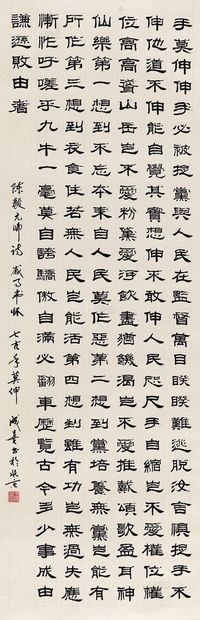 手莫伸伸手必被捉黨與人民在監督萬目睽睽難逃脫汝言懼捉手不
伸他道不伸能自覺其實想伸不敢伸人民咫尺手自縮豈不愛權位權
位高高聳山岳豈不愛粉黛愛河飲盡猶饑渴豈不愛推戴頌歌盈耳神
仙樂第一想到不忘本來自人民莫作惡第二想到黨培養無黨豈能有
所作第三想到衣食住若無人民豈能活第四想到雖有功豈無過失應
慚怍吁嗟乎九牛一毫莫自誇驕傲自滿必翻車歷覽古今多少事成由
謙遜敗由奢
陳毅元帥詩 感事書懷 七古手莫伸 書於